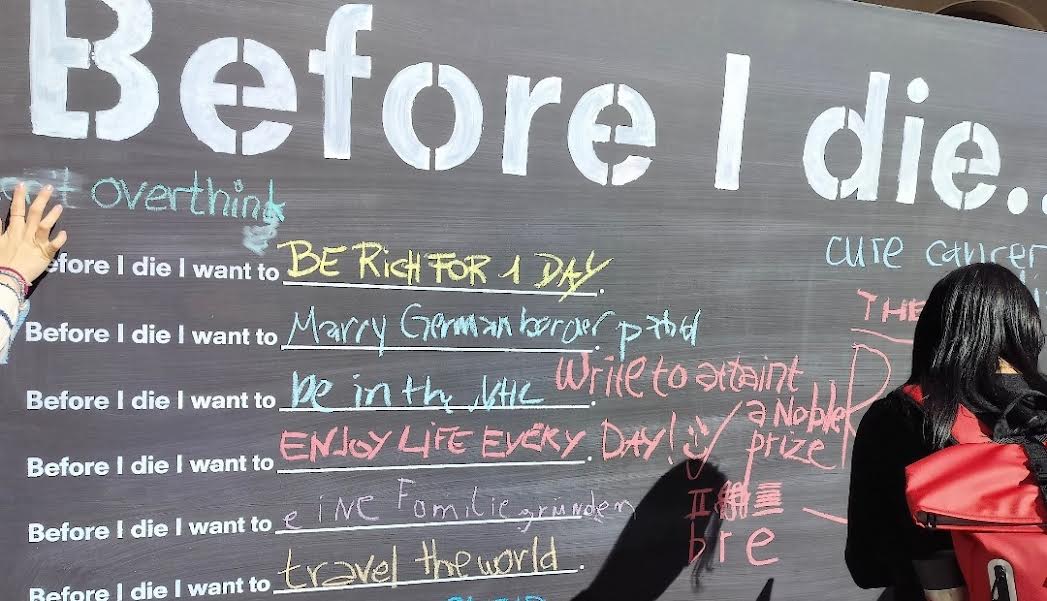 Before I die...
overthink
cure cancer
efore I die I want to BE RicH FOR 1 DAY.
THE
Before I die I want to Marry German borger
Before I die I want to be in the NHL.
Write to attaint
a Noble
prize
Before I die I want to ENJOY LIFE EVERY DAY!
Before I die I want to eiNe Familie gründen
bre
Before I die I want to travel the world.
Before I die I want to